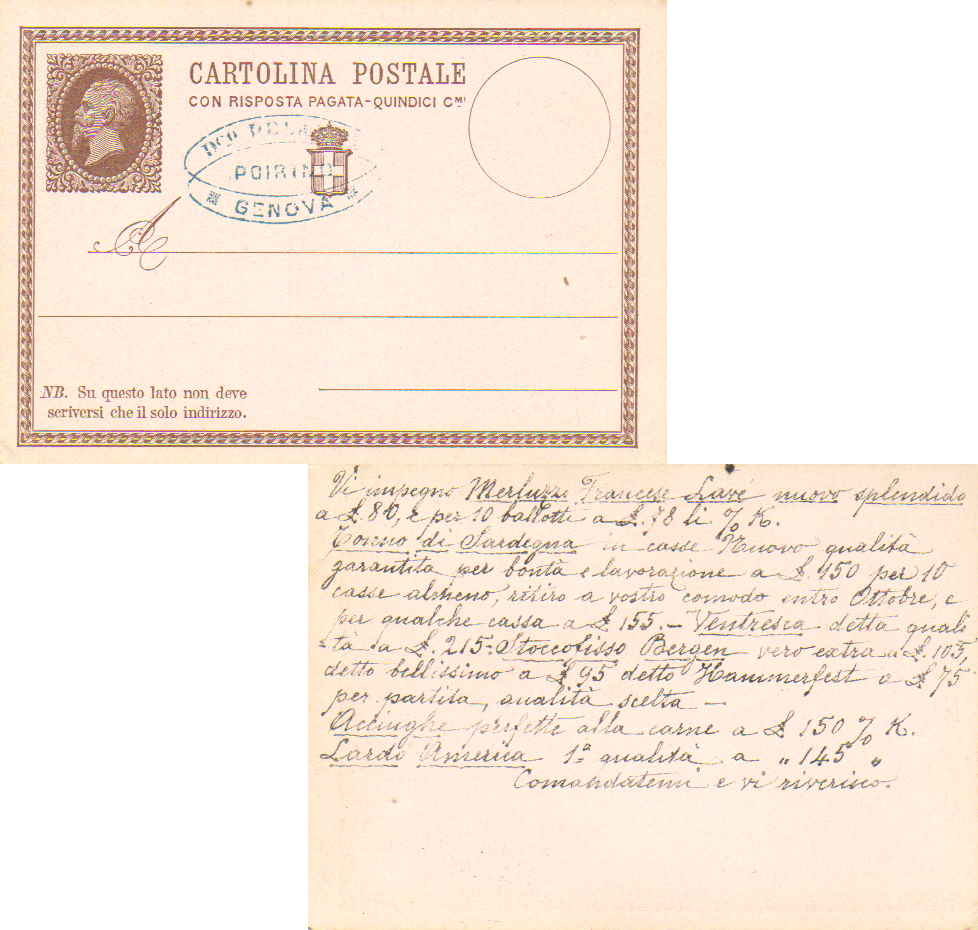 CARTOLINA POSTALE
CON RISPOSTA PAGATA-QUINDICI CMI
Dco
POIRINO
GENOVA
A
NB. Su questo lato non deve
scriversi che il solo indirizzo.
Vi impegno Merluzzo Francese Lavé nuovo splendido
a £. 80, e per 10 ballotti a £. 78 li % K.
Tonno di Sardegna in casse Nuovo qualità
garantita per bontà e lavorazione a £. 150 per 10
casse almeno, ritiro a vostro comodo entro Ottobre, e
per qualche cassa a £ 155. – Ventresca detta quali
-tà a £. 215- Stoccofisso Bergen vero extra a £. 105,
detto bellissimo a £ 95 detto Hammerfest a £ 75
per partita, qualità scelta —
Acciughe perfette alla carne a £ 150 % K.
Lardo America 1ª qualità a „ 145 „
Comandatemi e vi riverisco.